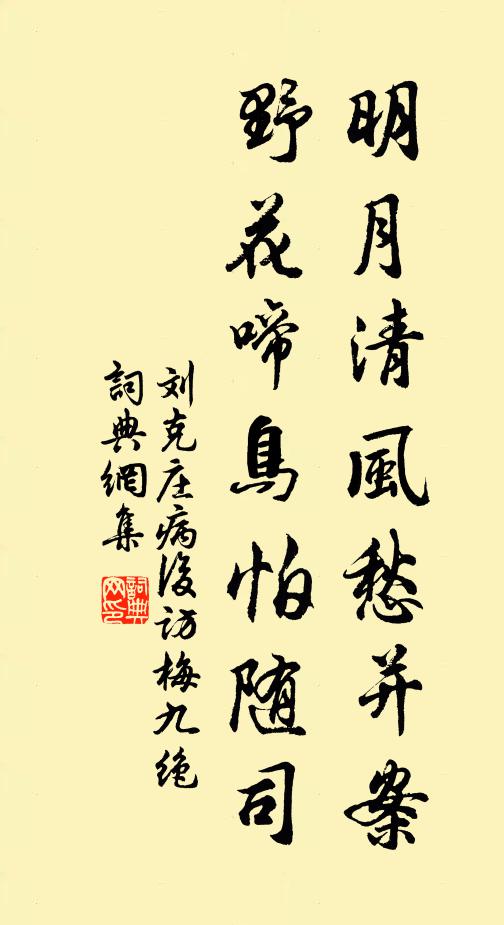 明月清風愁并案
野花啼鳥怕随司
刘克庄病後访梅九绝
詞典網集
詞典網印